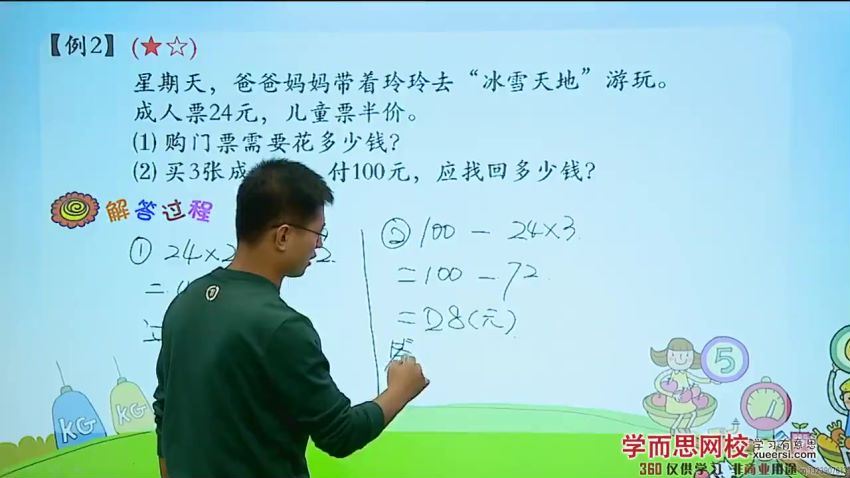 【例2】(★☆)
星期天，爸爸妈妈带着玲玲去“冰雪天地”游玩。
成人票24元，儿童票半价。
(1) 购门票需要花多少钱？
(2) 买3张成 付100元，应找回多少钱？
解答过程
① 24×2
=
② 100 - 24×3
= 100 - 72
= 28(元)
答
KG
KG
5
学而思网校 学习有意思
xueersi.com
360 仅供学习 非商业用途